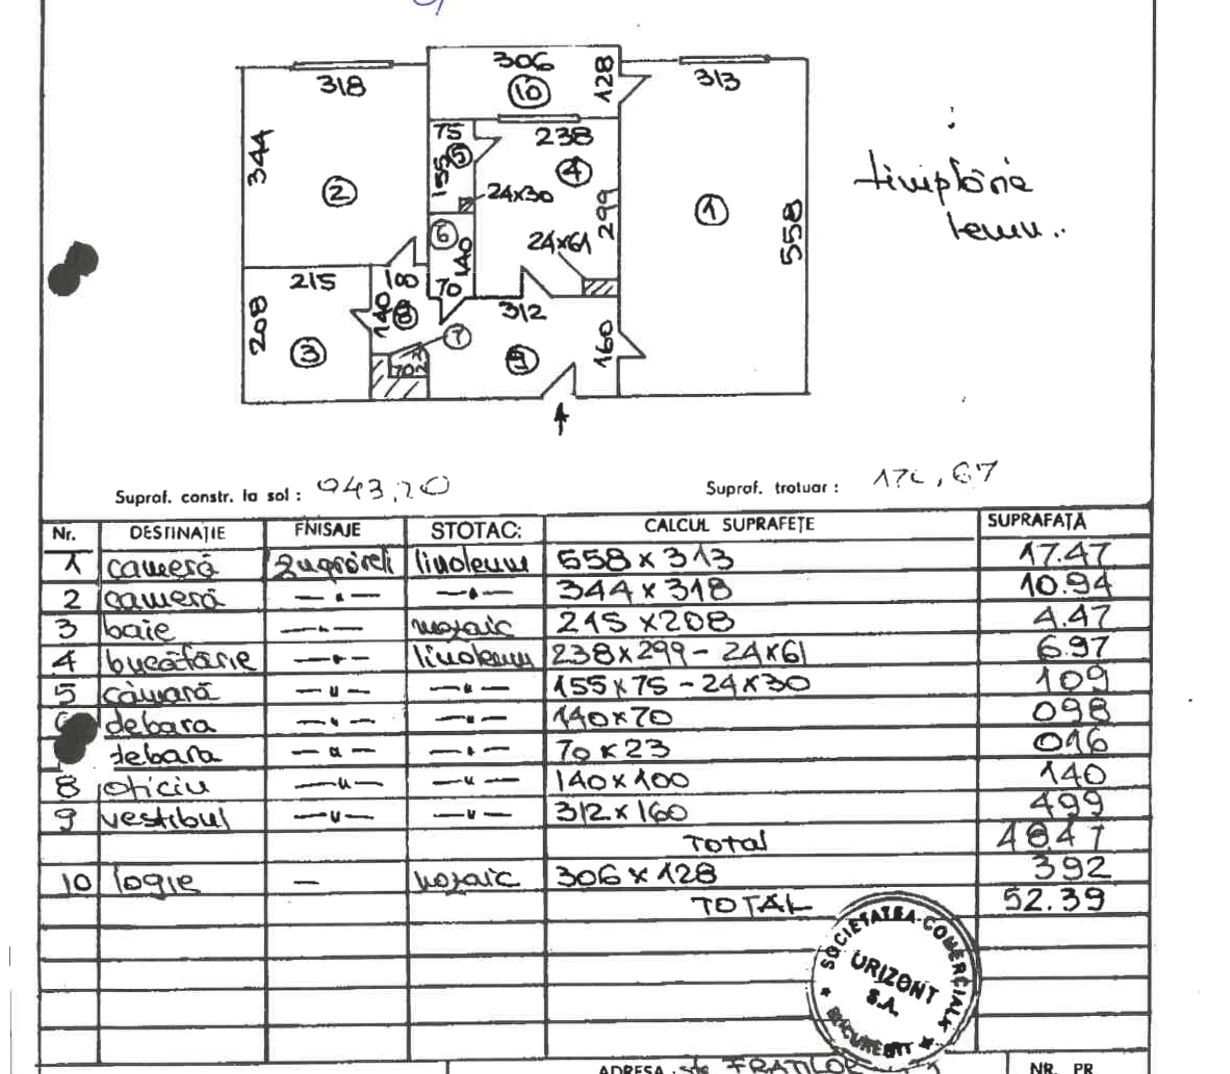 306
128
313
318
10
75
5
238
344
155
4
2
24x30
299
1
558
6
24x61
140
215
100
70
312
208
140
8
7
3
9
160
70
lemn..
Supraf. constr. la sol : 943,20
Supraf. trotuar : ,67
Nr. DESTINAȚIE FNISAJE STOTAC: CALCUL SUPRAFEȚE SUPRAFAȚĂ
1 cameră zugrăveli linoleum 558 x 313 17.47
2 cameră —"— —"— 344 x 318 10.94
3 baie —"— mozaic 215 x 208 4.47
4 bucătărie —"— linoleum 238 x 299 - 24 x 61 6.97
5 cămară —"— —"— 155 x 75 - 24 x 30 109
debara —"— —"— 140 x 70 098
debara —"— —"— 70 x 23 016
8 oficiu —"— —"— 140 x 100 140
9 vestibul —"— —"— 312 x 160 499
Total 4847
10 logie — mozaic 306 x 128 392
TOTAL 52.39
SOCIETATEA COMERCIALA
URIZONT
S.A.
BUCURESTI
ADRESA : FRATILOR
NR. PR